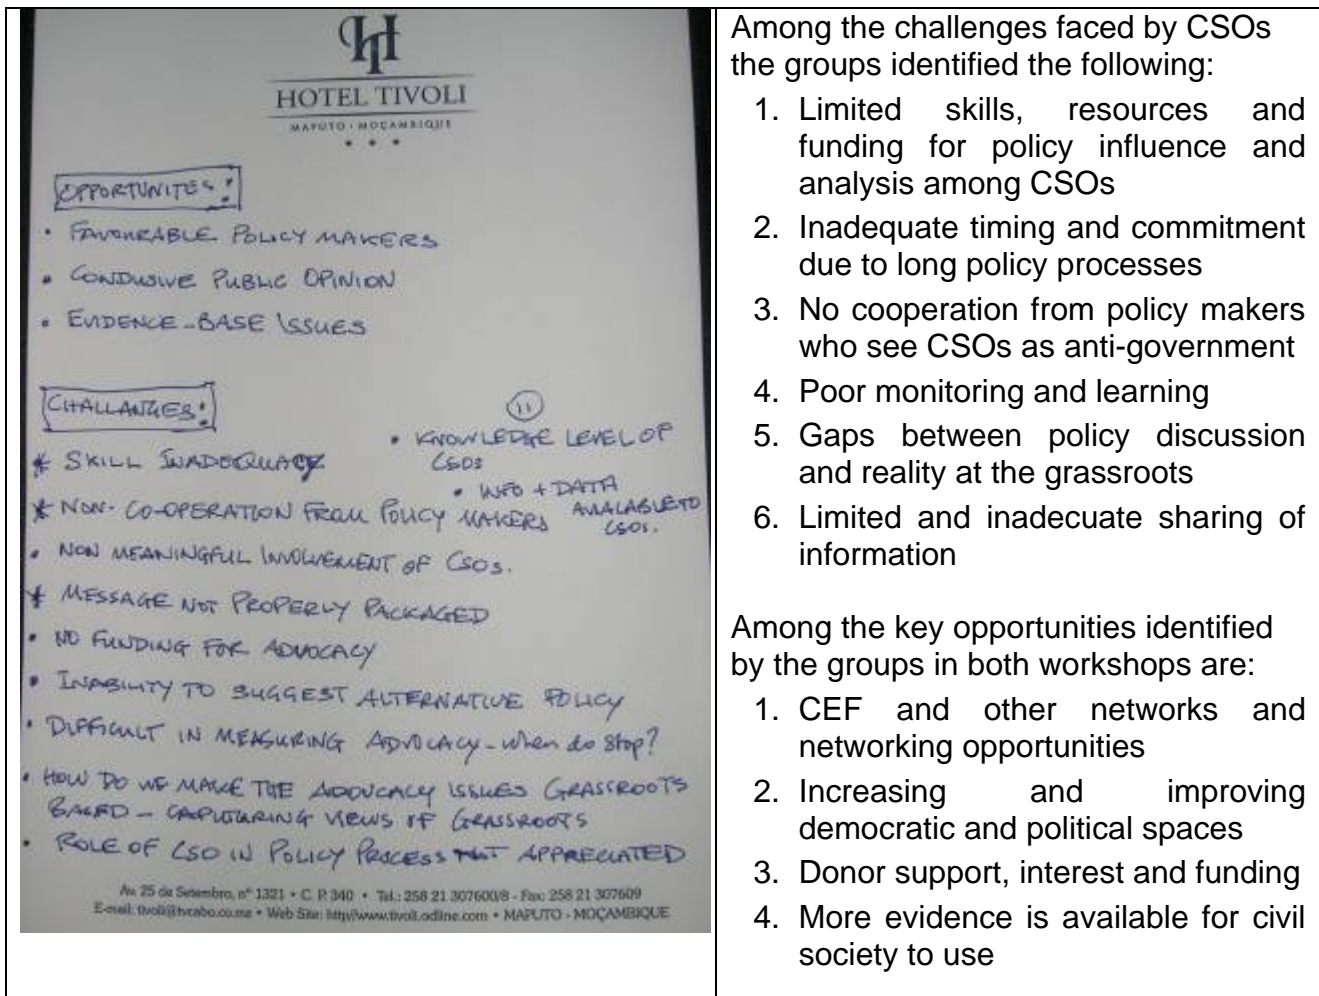 HT
HOTEL TIVOLI
MAPUTO - MOÇAMBIQUE
OPPORTUNITES:
• FAVOURABLE POLICY MAKERS
• CONDUSIVE PUBLIC OPINION
• EVIDENCE-BASE ISSUES
CHALLANGES:
11
• KNOWLEDGE LEVEL OF
CSOS
* SKILL INADEQUACY
• INFO + DATA
AVALABLE TO
CSOS.
* NON-CO-OPERATION FROM POLICY MAKERS
• NON MEANINGFUL INVOLVEMENT OF CSOs.
* MESSAGE NOT PROPERLY PACKAGED
• NO FUNDING FOR ADVOCACY
• INABILITY TO SUGGEST ALTERNATIVE POLICY
• DIFFICULT IN MEASURING ADVOCACY - when do stop?
• HOW DO WE MAKE THE ADOVCACY ISSUES GRASSROOTS
BASED - CAPUTURING VIEWS OF GRASSROOTS
• ROLE OF CSO IN POLICY PROCESS NOT APPRECIATED
Av. 25 de Setembro, nº 1321 • C. P. 340 • Tel.: 258 21 307600/8 - Fax: 258 21 307609
E-mail: tivoli@tvcabo.co.mz • Web Site: http//www.tivoli.odline.com • MAPUTO - MOÇAMBIQUE
Among the challenges faced by CSOs
the groups identified the following:
1. Limited skills, resources and
funding for policy influence and
analysis among CSOs
2. Inadequate timing and commitment
due to long policy processes
3. No cooperation from policy makers
who see CSOs as anti-government
4. Poor monitoring and learning
5. Gaps between policy discussion
and reality at the grassroots
6. Limited and inadecuate sharing of
information
Among the key opportunities identified
by the groups in both workshops are:
1. CEF and other networks and
networking opportunities
2. Increasing and improving
democratic and political spaces
3. Donor support, interest and funding
4. More evidence is available for civil
society to use